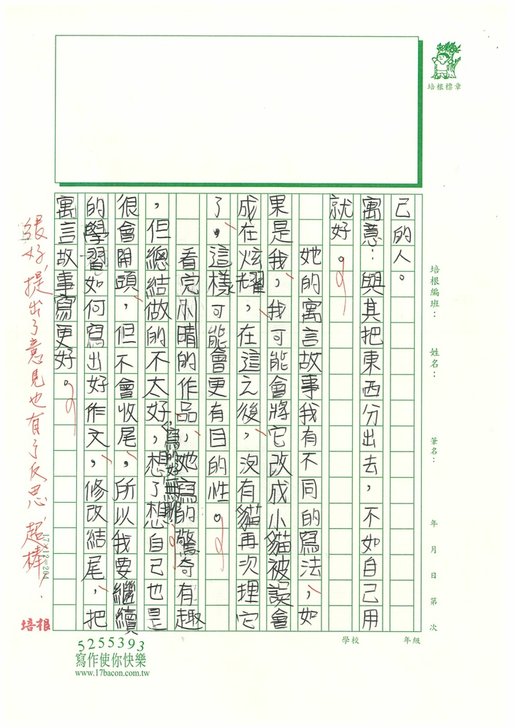 培根標章
培根編班：
姓名：
筆名：
年 月 日 第 次
己的人。
寓意：與其把東西分出去，不如自己用
就好。
她的寓言故事我有不同的寫法，如
果是我，我可能會將它改成小貓被誤會
成在炫耀，在這之後，沒有貓再次理它
了。這樣可能會更有目的性。
看完小晴的作品，她寫的驚奇有趣
，但總結做的不太好，想了想自己也是
很會開頭，但不會收尾，所以我要繼續
的學習如何寫出好作文，修改結尾，把
寓言故事寫更好。
很好，提出了意見也有了反思，超棒！
培根
5255393
寫作使你快樂
www.17bacon.com.tw
學校
年級